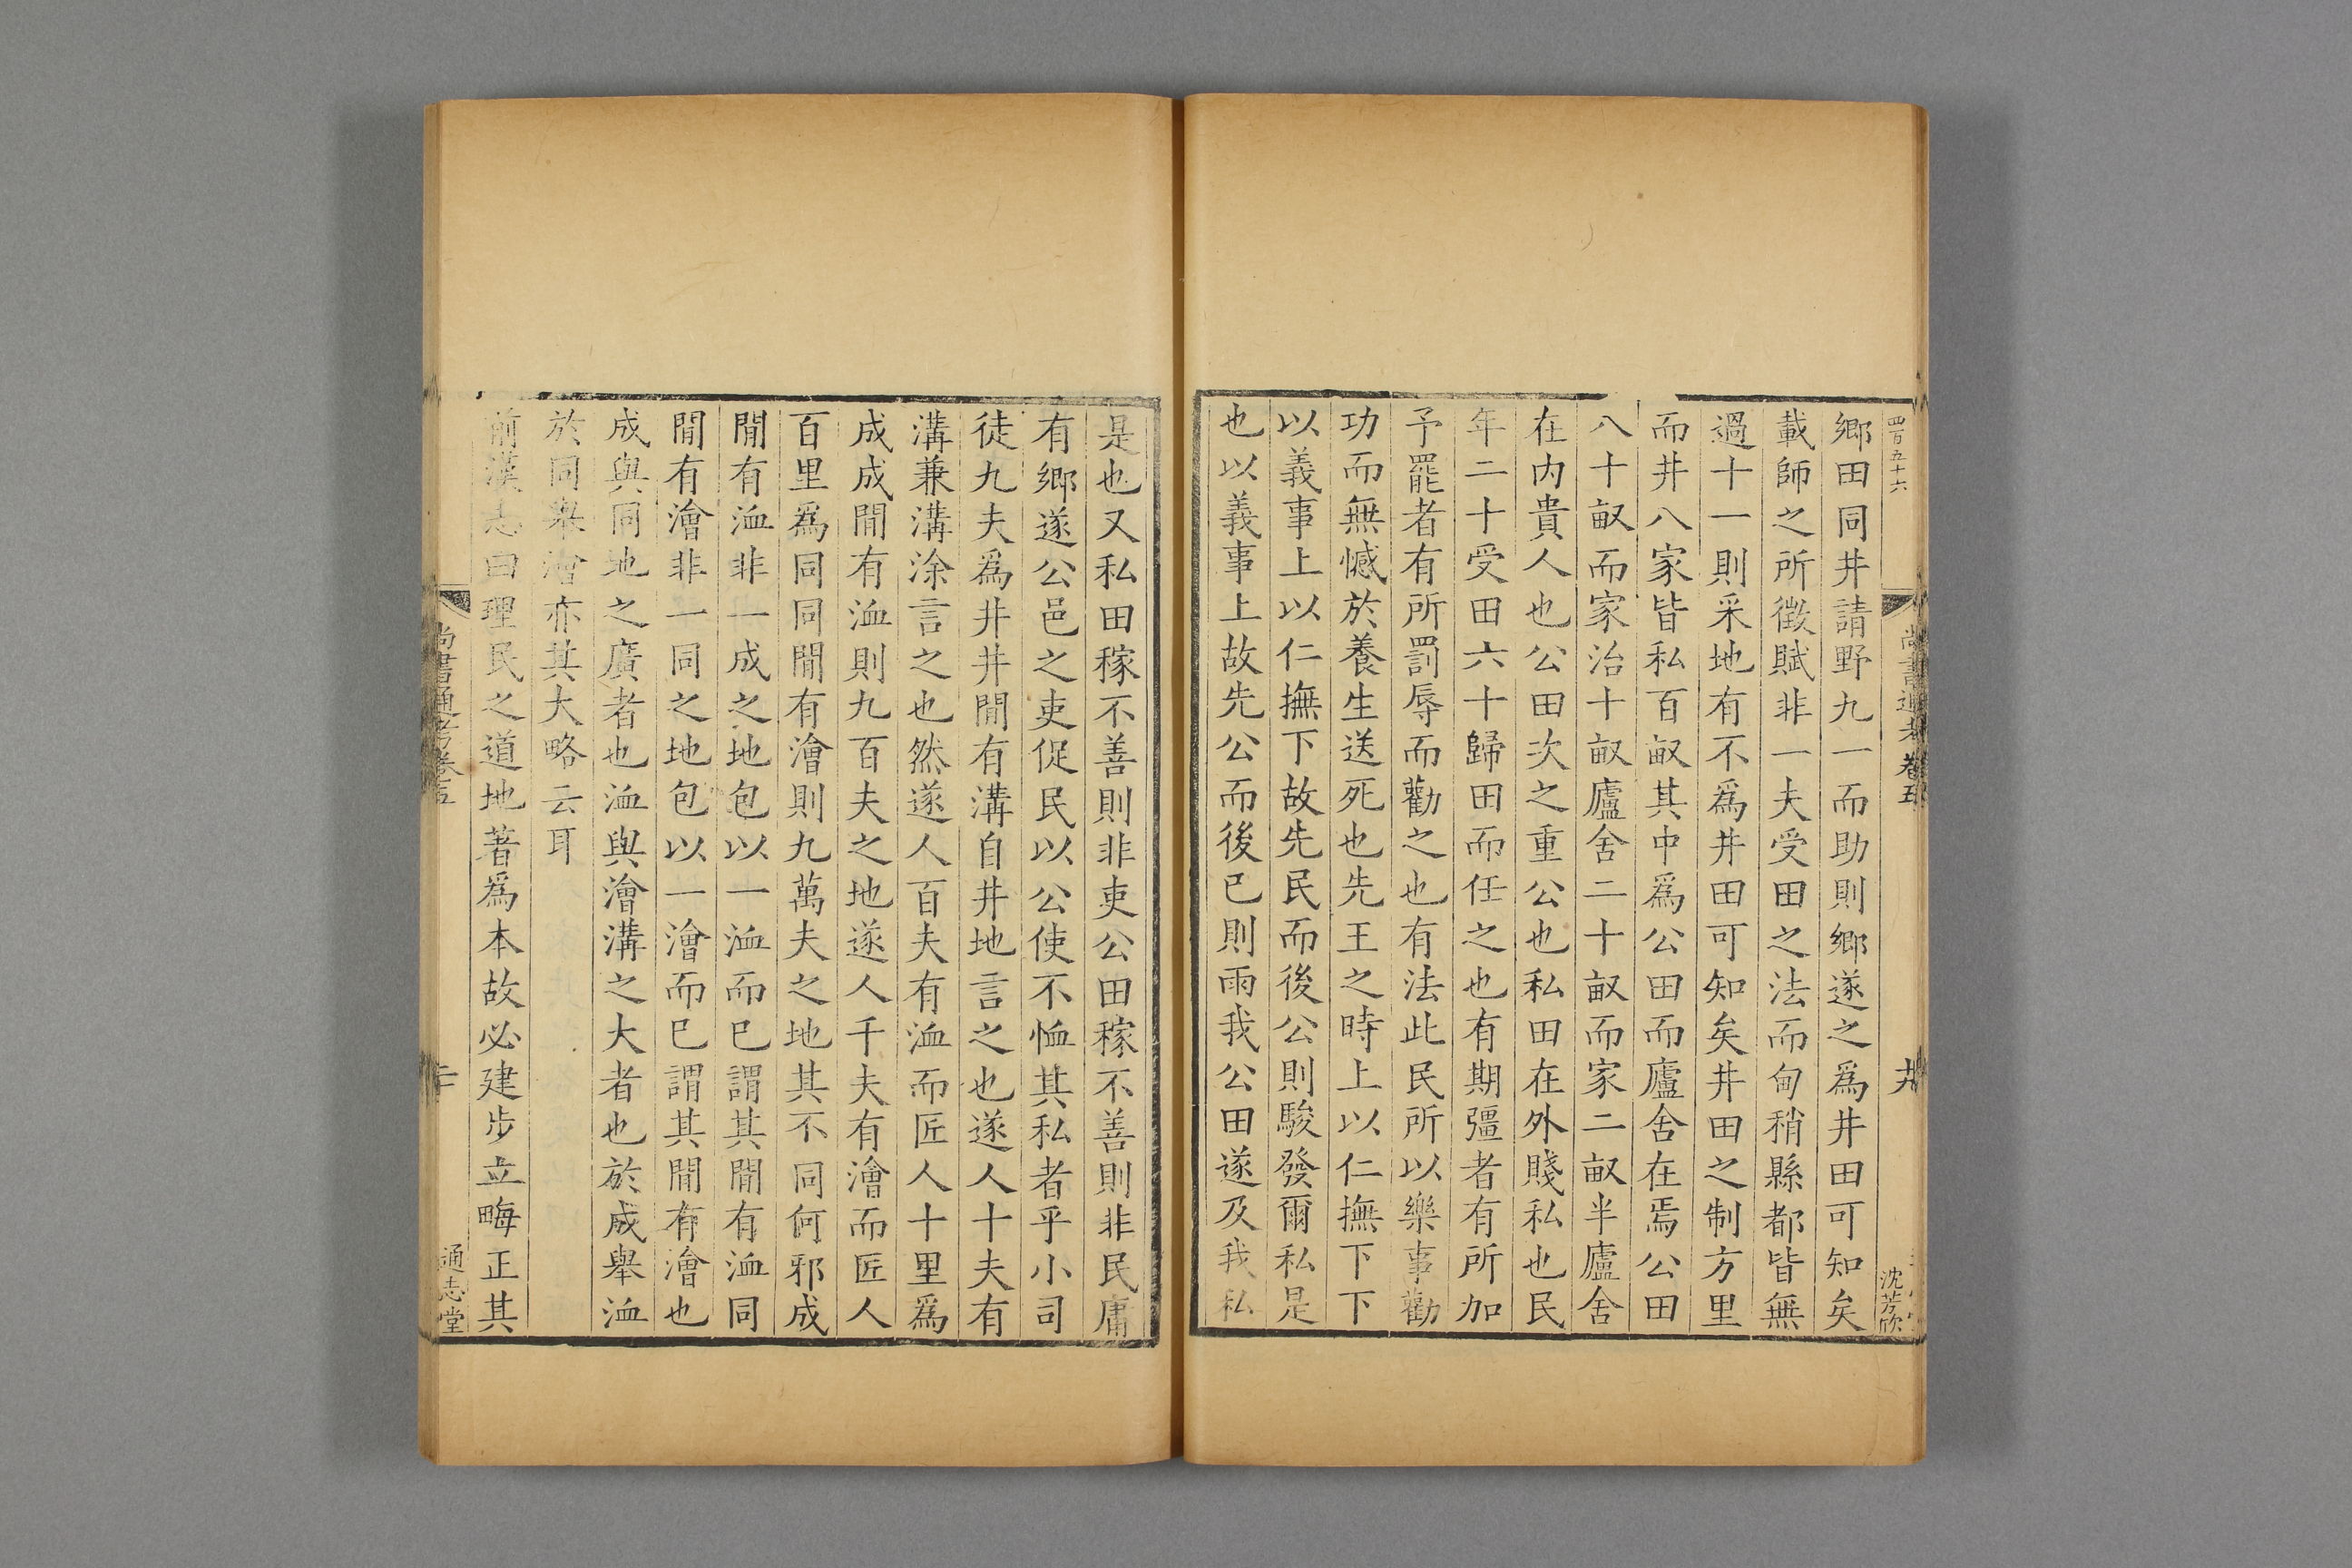 四百五十六
尚書通考卷五
沈芳欣
鄉田同井請野九一而助則鄉遂之爲井田可知矣
載師之所徵賦非一夫受田之法而甸稍縣都皆無
過十一則采地有不爲井田可知矣井田之制方里
而井八家皆私百畝其中爲公田而廬舍在焉公田
八十畝而家治十畝廬舍二十畝而家二畝半廬舍
在内貴人也公田次之重公也私田在外賤私也民
年二十受田六十歸田而任之也有期彊者有所加
予罷者有所罰辱而勸之也有法此民所以樂事勸
功而無憾於養生送死也先王之時上以仁撫下下
以義事上以仁撫下故先民而後公則駿發爾私是
也以義事上故先公而後已則雨我公田遂及我私
是也又私田稼不善則非吏公田稼不善則非民庸
有鄉遂公邑之吏促民以公使不恤其私者乎小司
徒九夫爲井井閒有溝自井地言之也遂人十夫有
溝兼溝涂言之也然遂人百夫有洫而匠人十里爲
成成閒有洫則九百夫之地遂人千夫有澮而匠人
百里爲同同閒有澮則九萬夫之地其不同何邪成
閒有洫非一成之地包以一洫而已謂其閒有洫同
閒有澮非一同之地包以一澮而已謂其閒有澮也
成與同地之廣者也洫與澮溝之大者也於成舉洫
於同舉澮亦其大略云耳
前漢志曰理民之道地著爲本故必建步立畮正其
尚書通考卷五
二十
通志堂